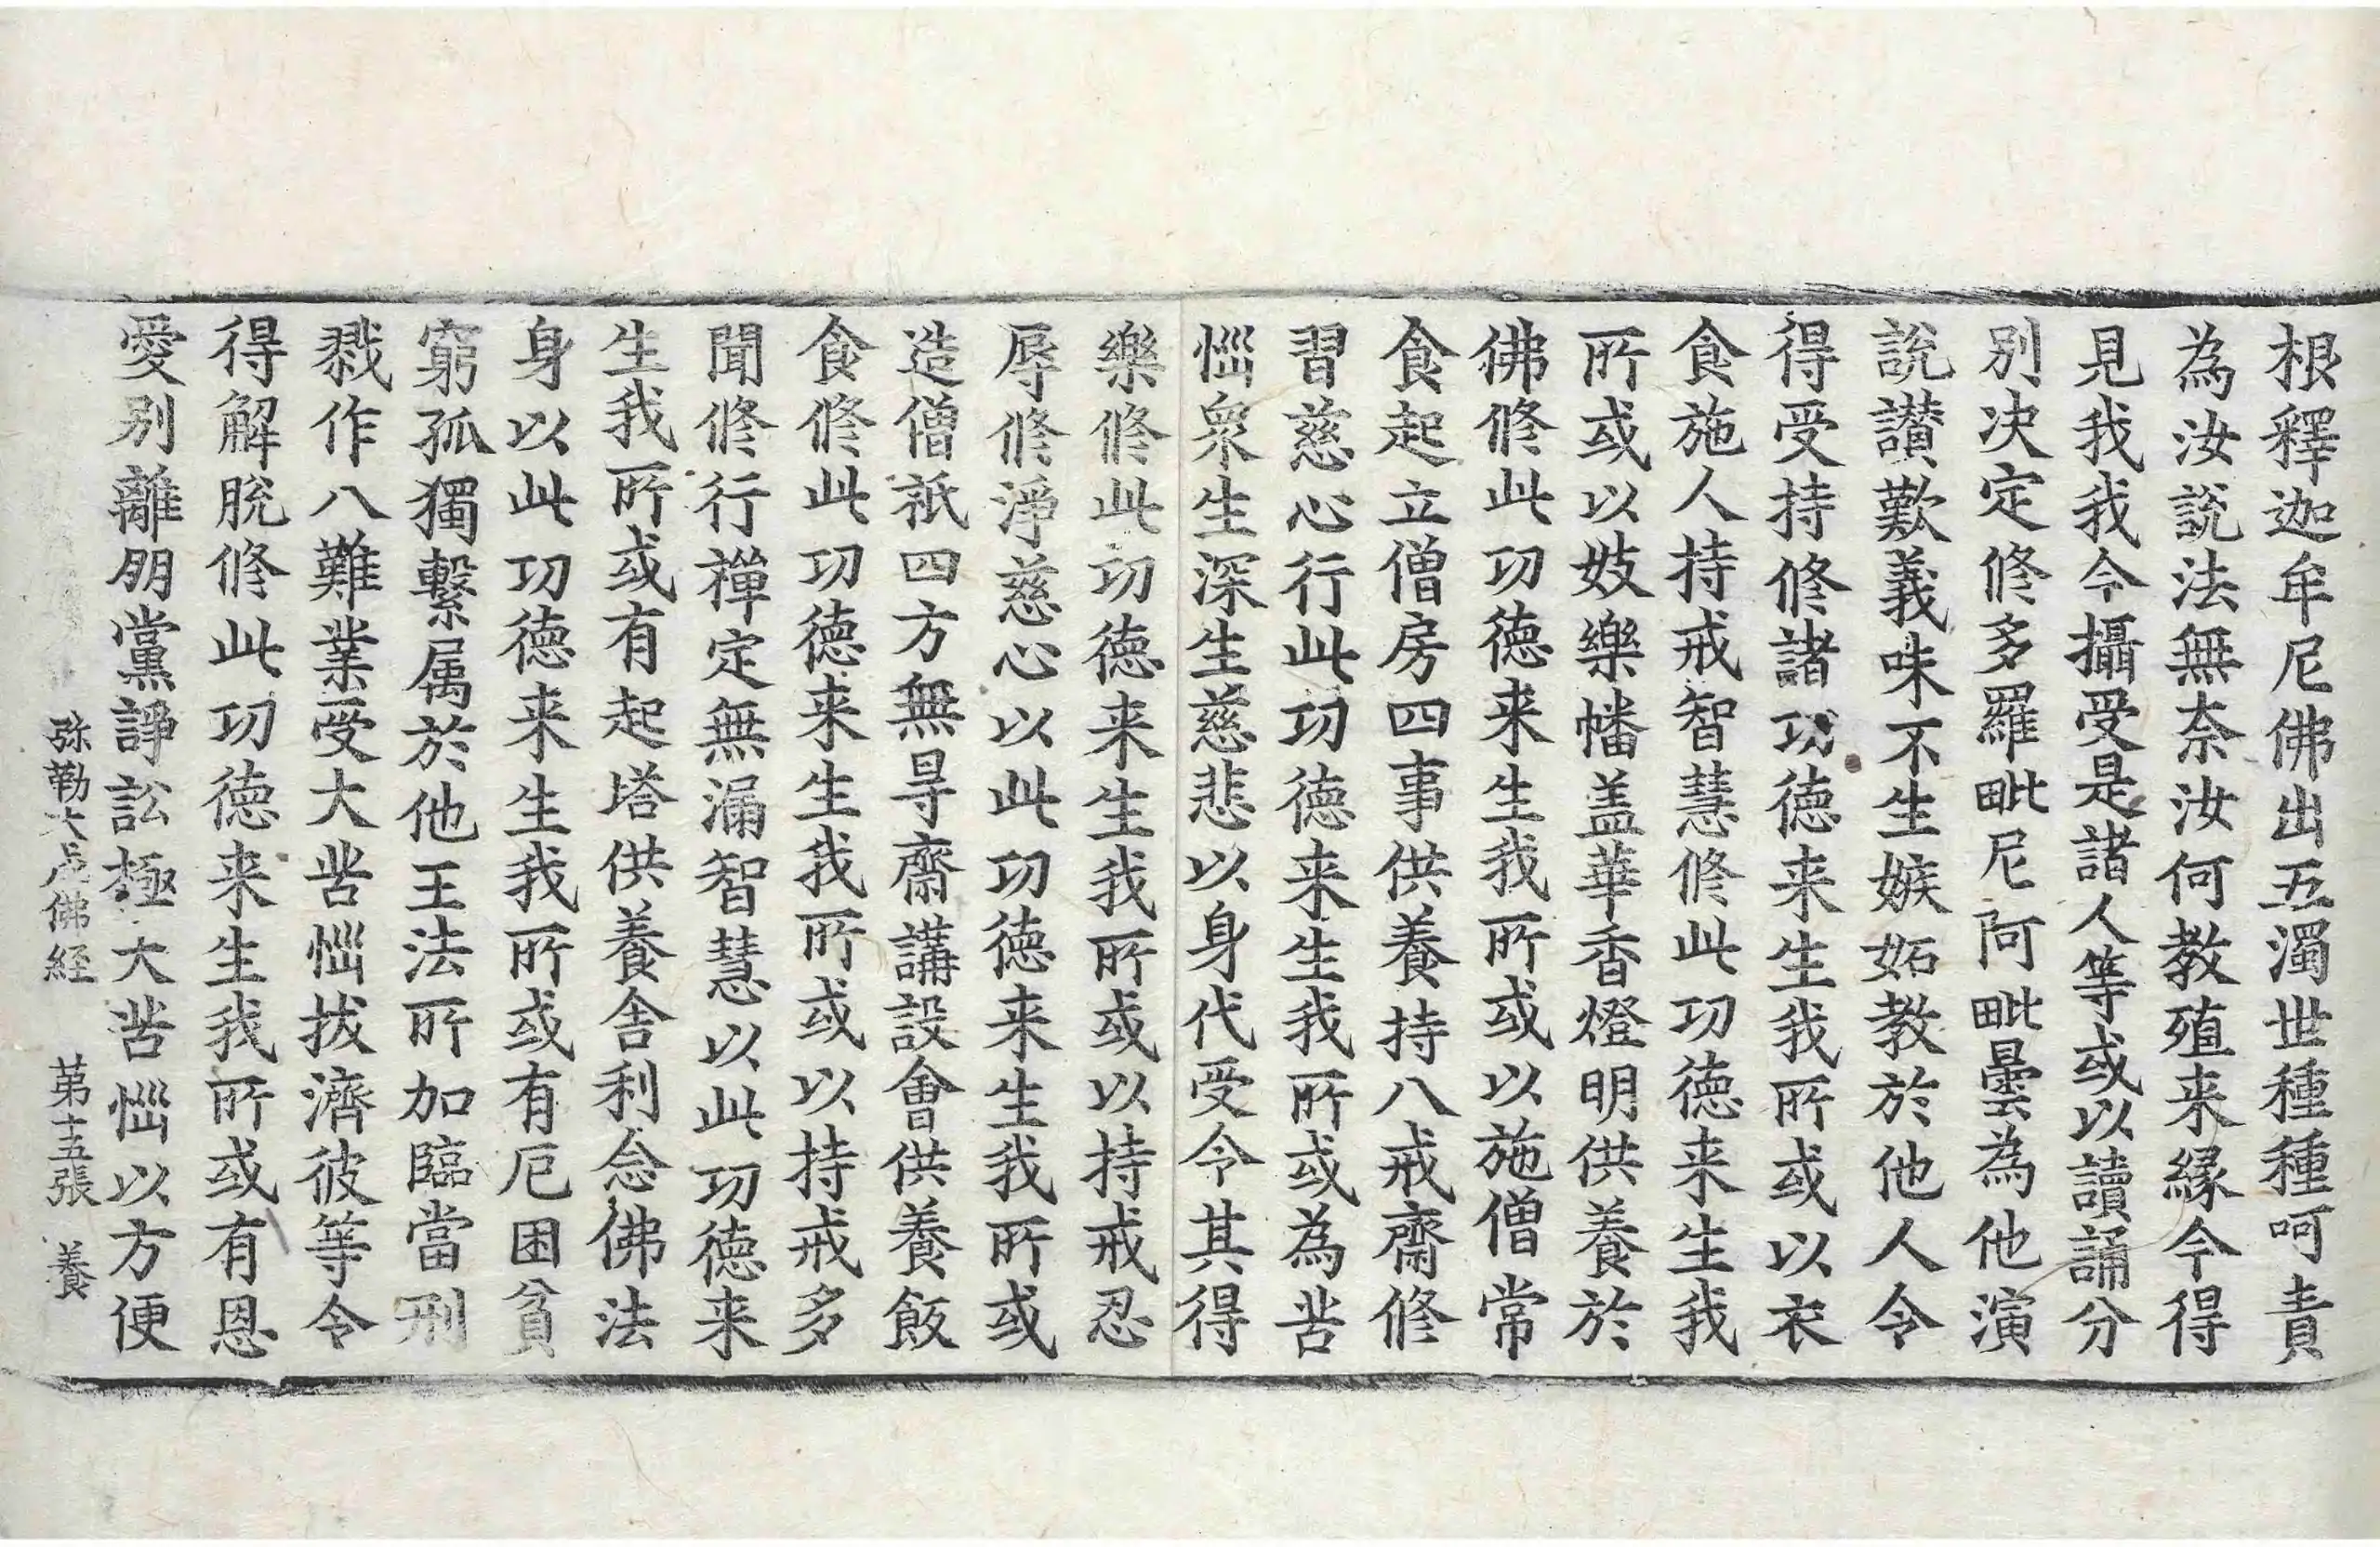 根釋迦牟尼佛出五濁世種種呵責
為汝說法無奈汝何教殖来緣今得
見我我今攝受是諸人等或以讀誦分
別决定修多羅毗尼阿毗曇為他演
說讃歎義味不生嫉妬教於他人令
得受持修諸功德来生我所或以衣
食施人持戒智慧修此功德来生我
所或以妓樂幡盖華香燈明供養於
佛修此功德来生我所或以施僧常
食起立僧房四事供養持八戒齋修
習慈心行此功德来生我所或為苦
惱衆生深生慈悲以身代受令其得
樂修此功德来生我所或以持戒忍
辱修淨慈心以此功德来生我所或
造僧祇四方無㝵齋講設會供養飯
食修此功德来生我所或以持戒多
聞修行禪定無漏智慧以此功德来
生我所或有起塔供養舍利念佛法
身以此功德来生我所或有厄困貧
窮孤獨繫属於他王法所加臨當刑
戮作八難業受大苦惱拔濟彼等令
得解脫修此功德来生我所或有恩
愛別離朋黨諍訟極大苦惱以方便
弥勒大成佛経　第十五張　養